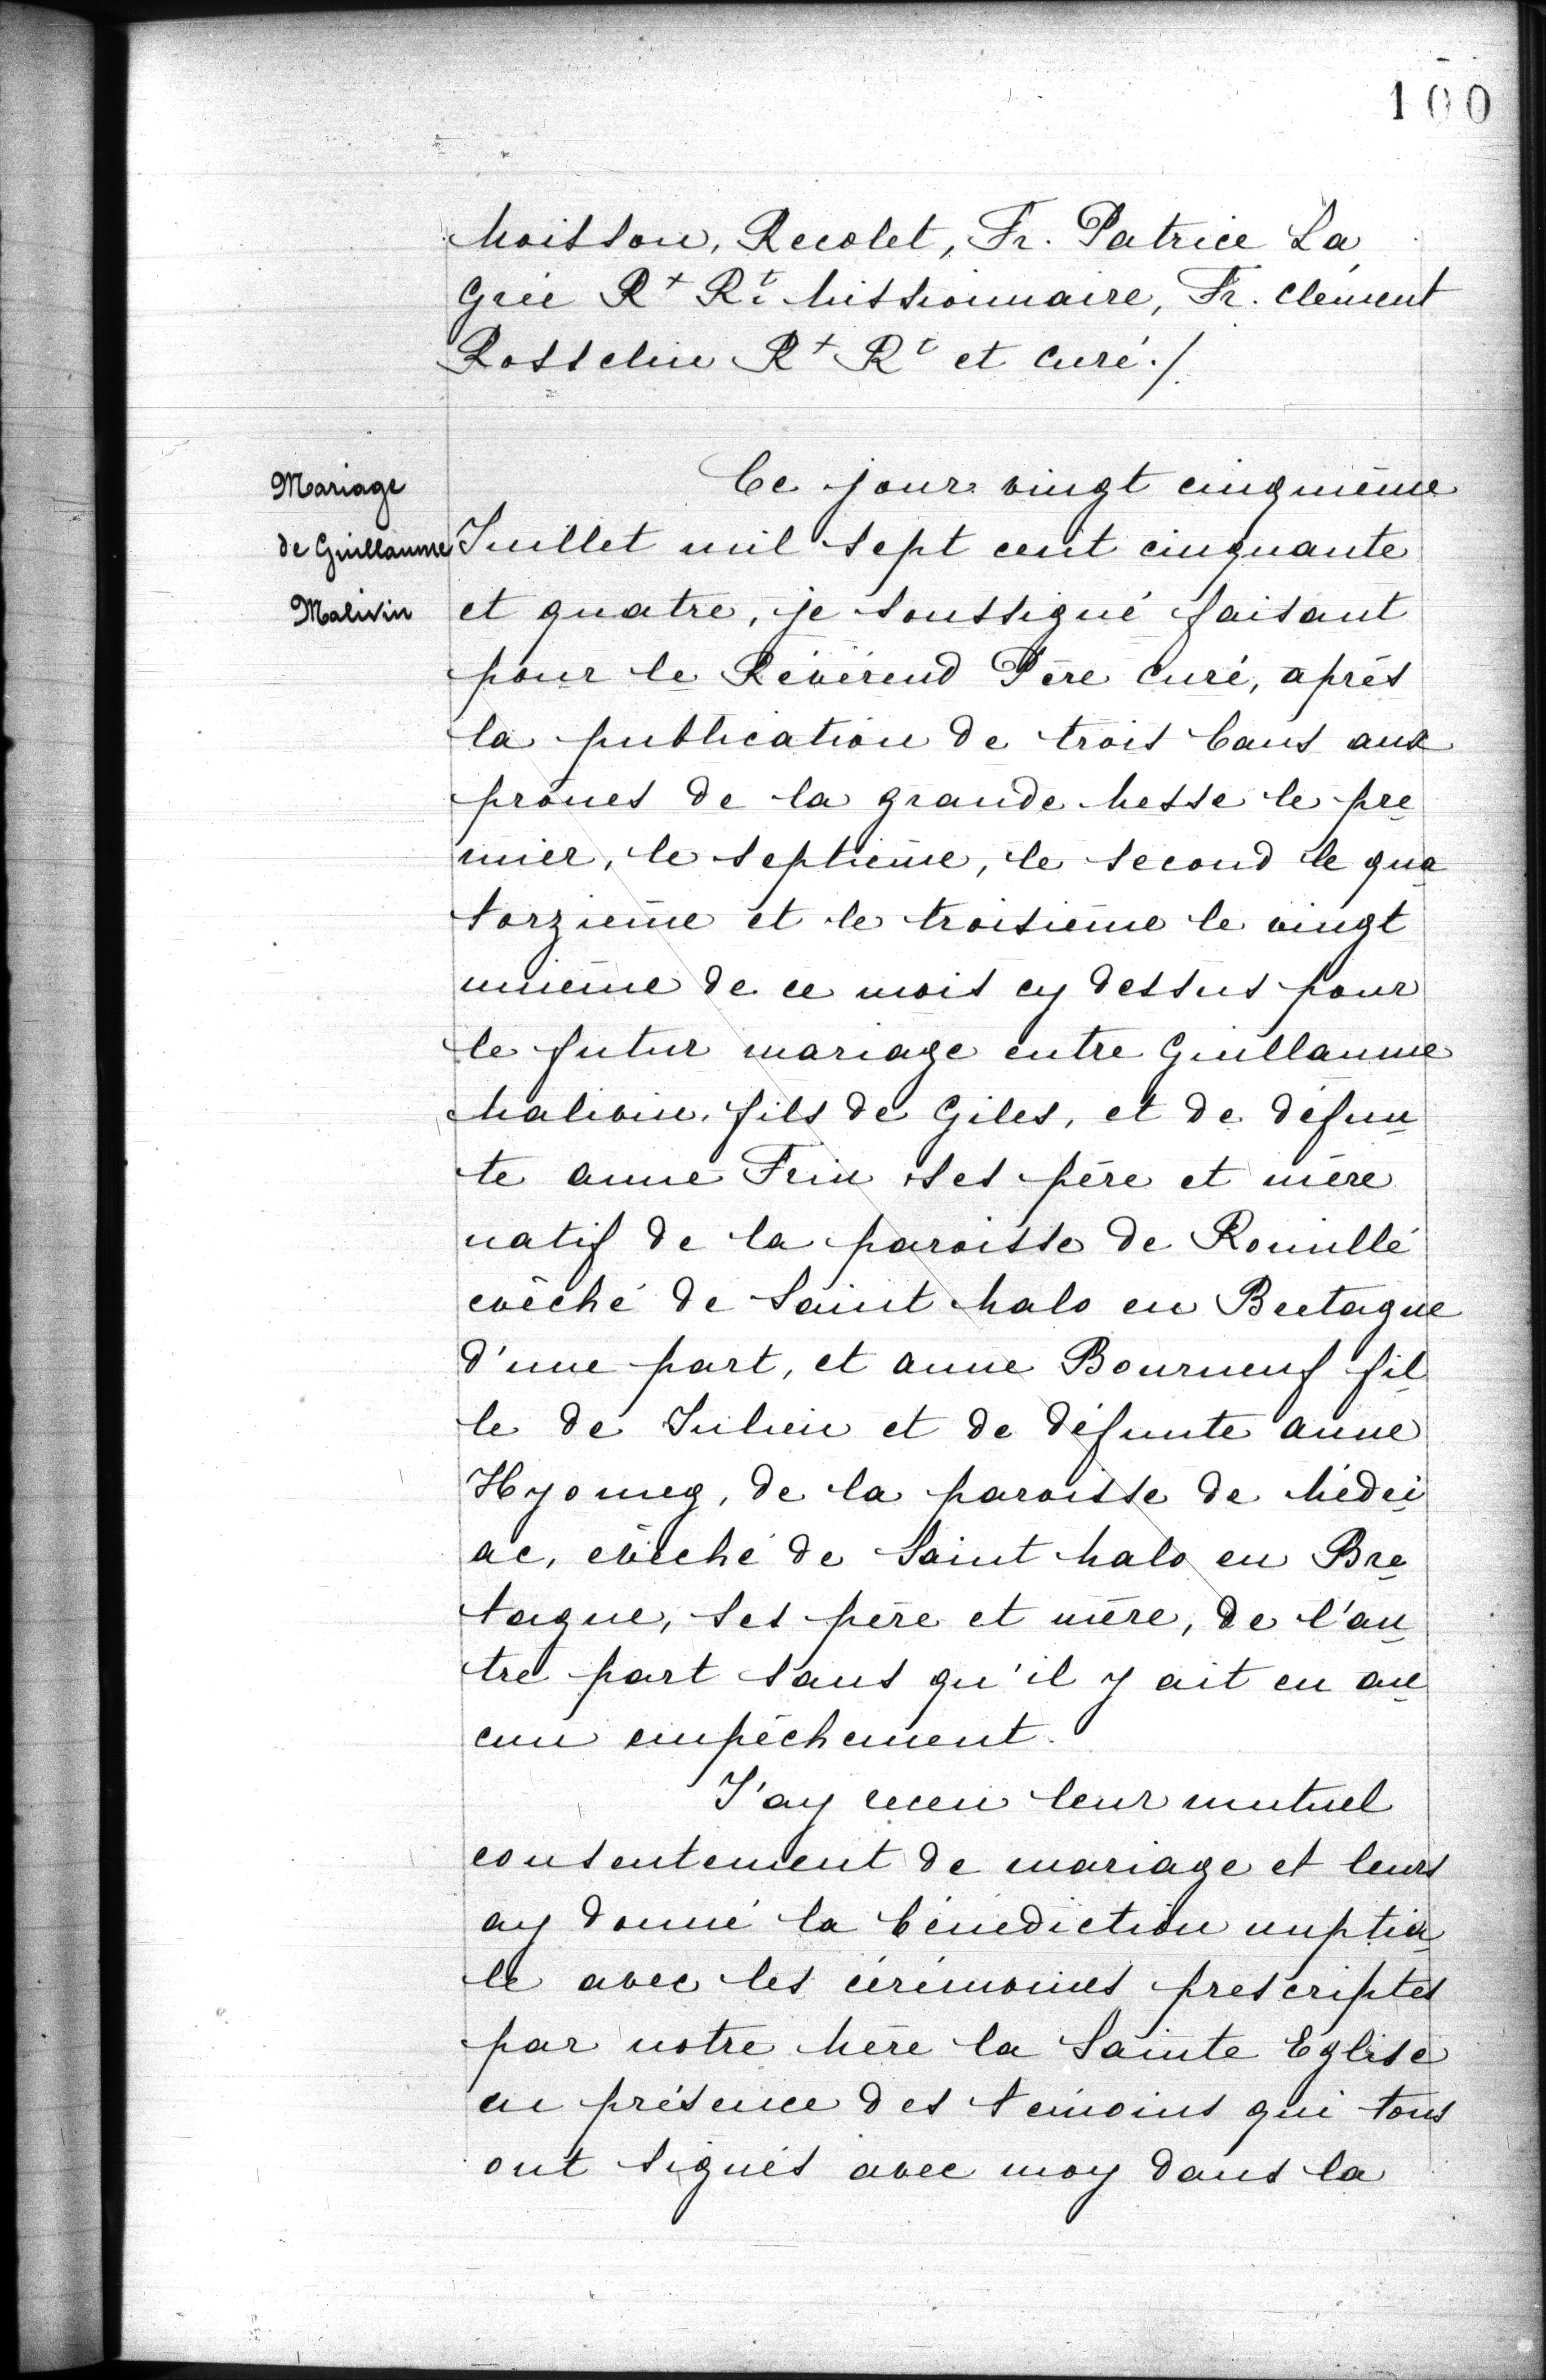 100
Moisson, Recolet, Fr. Patrice La
Grée R+ Rt Missionnaire, Fr. Clément
Rosselin R+ Rt et Curé./.
Mariage
de Guillaume
Malivin
Ce jour vingt cinquième
Juillet mil sept cent cinquante
et quatre, je soussigné faisant
pour le Révérend Père Curé, après
la publication de trois bans aux
prônes de la grande Messe le pre
mier, le septième, le second le qua
torzième et le troisième le vingt
unième de ce mois cy dessus pour
le futur mariage entre Guillaume
Malivin, fils de Giles, et de défun
te anne Frin ses père et mère
natif de la paroisse de Rouillé
evêché de Saint Malo en Bretagne
d'une part, et anne Bourneuf fil
le de Julien et de défunte anne
Hyomeg, de la paroisse de Médéi
ac, evêché de Saint Malo en Bre
tagne, ses père et mère, de l'au
tre part sans qu'il y ait eu au
cun empêchement.
J'ay receu leur mutuel
consentement de mariage et leurs
ay donné la bénédiction nuptia
le avec les cérémonies prescriptes
par notre Mère la Sainte Eglise
en présence des témoins qui tous
ont signés avec moy dans la